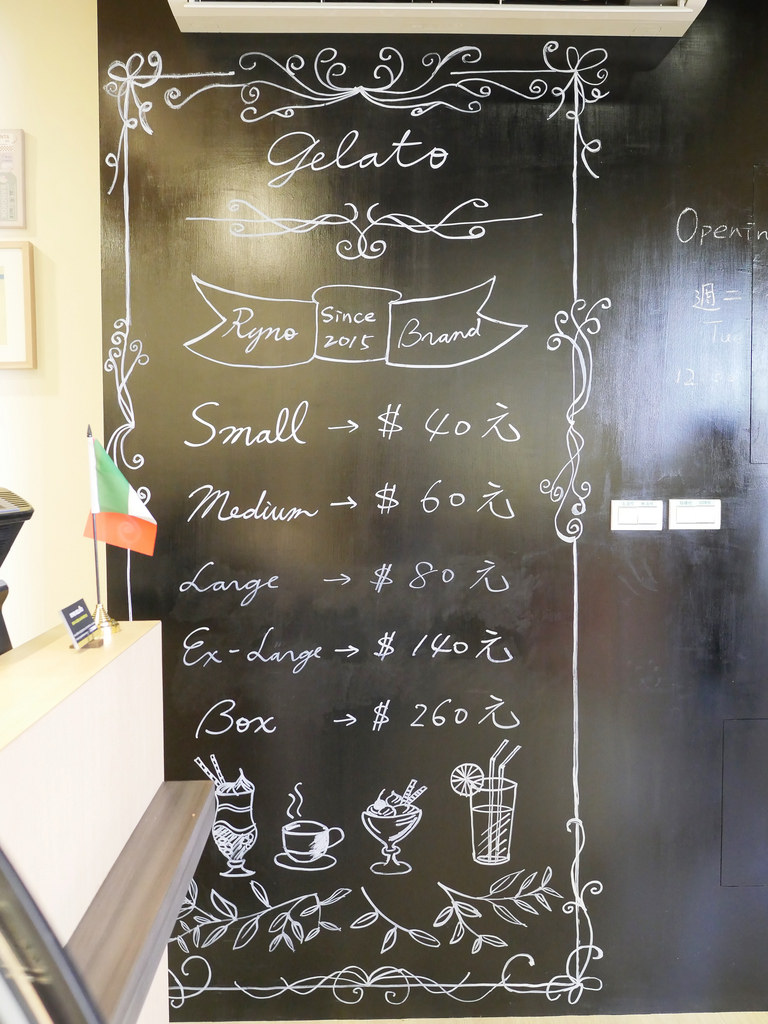 Gelato
Ryno Since 2015 Brand
Small → $ 40元
Medium → $ 60元
Large → $ 80元
Ex-Large → $ 140元
Box → $ 260元
Openin
週二
Tue
12